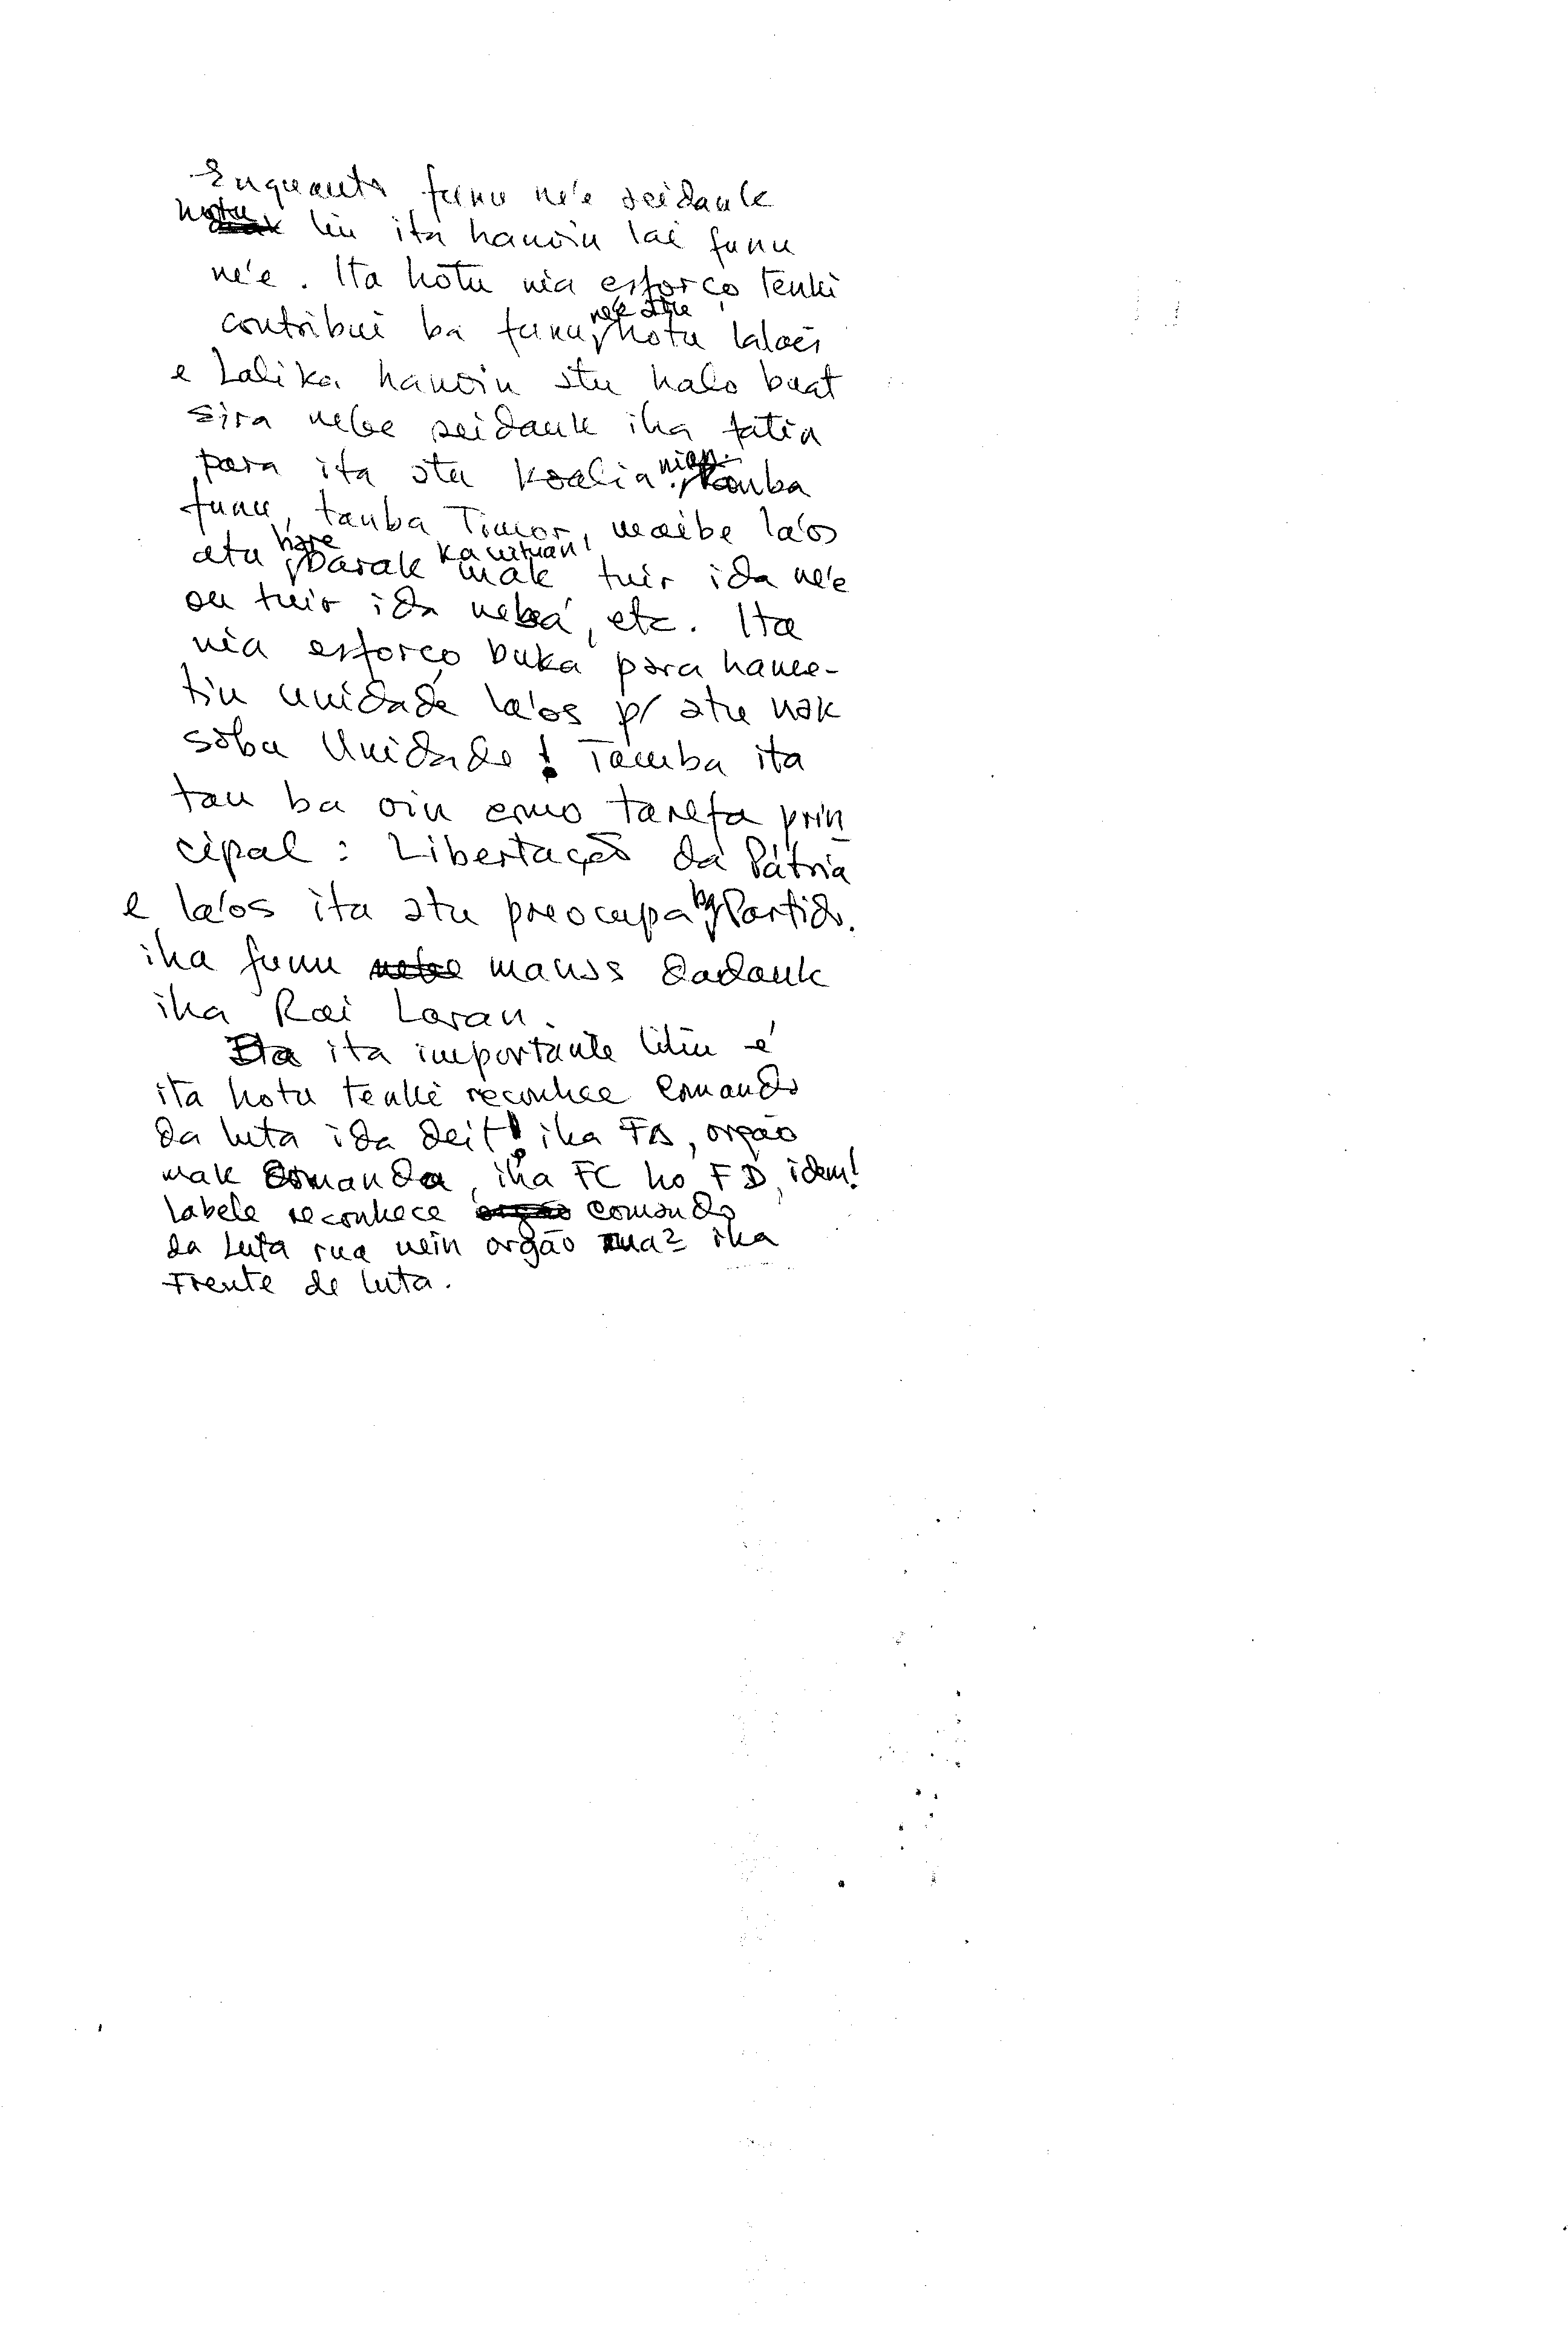 Enquanto funu ne'e seidauk
hotu liu ita hanoin lai funu
ne'e. Ita hotu nia esforço tenki
contribui ba funu ne'e atu hotu lalais
e Lalika hanoin atu halo buat
sira nebe seidauk iha fatin
para ita atu koalia nian. Tanba
funu, tanba Timor, maibe la'os
atu hare barak ka uituan! mak tuir ida ne'e
ou tuir ida nebá, etc. Ita
nia esforço buka para hame-
tin unidade la'os p/ atu nak
sobu Unidade! Tamba ita
tau ba oin como tarefa prin
cipal: Libertação da Pátria
e la'os ita atu preocupa ba Partido.
iha funu manas dadauk
iha Rai Laran.
ita importante liliu é
ita hotu tenki reconhece Comando
da luta ida deit! iha FA, orgão
mak Comanda, iha FC ho FD, idem!
labele reconhece comando
da Luta rua nein orgão rua2 iha
Frente de luta.